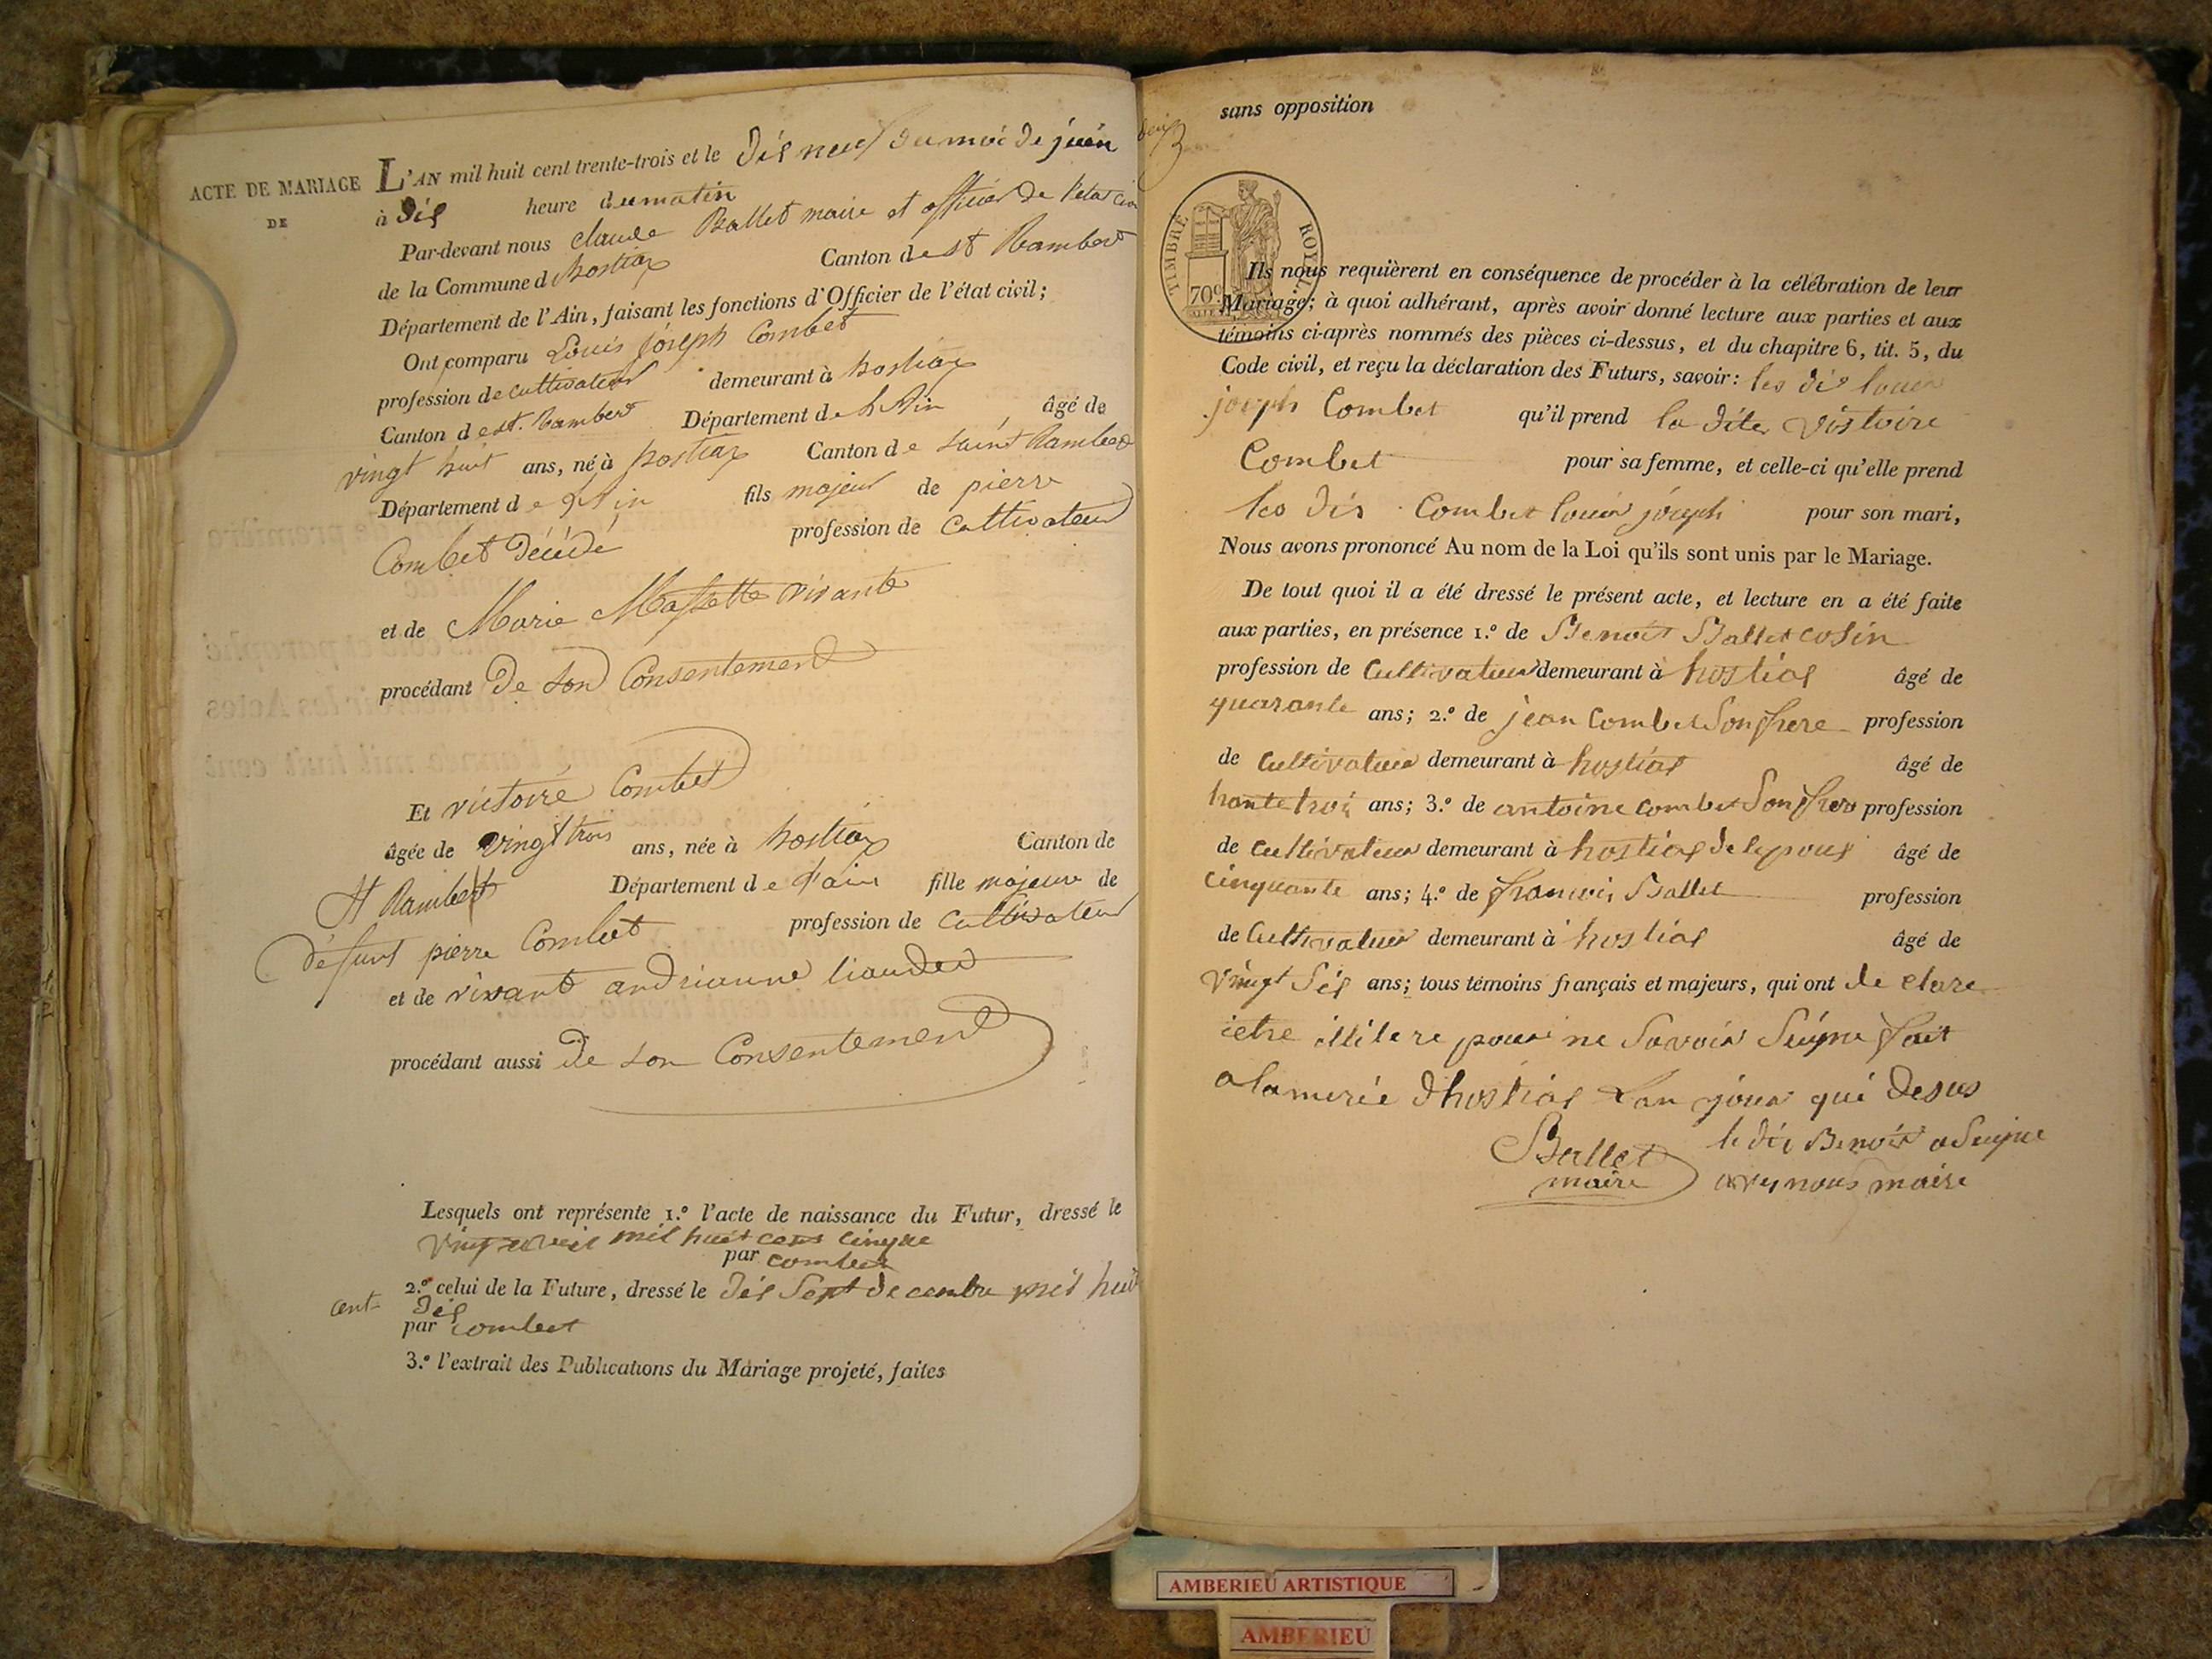 ACTE DE MARIAGE
DE
L'AN mil huit cent trente-trois et le dis neuf du moi de juin
à dis heure du matin
Par-devant nous claude Ballet maire et officier de l'état civi
de la Commune d hostiax Canton de st Rambert
Département de l'Ain, faisant les fonctions d'Officier de l'état civil;
Ont comparu Louis joseph Combet
profession de cultivateur demeurant à hostiax
Canton de st. Rambert Département de l'Ain âgé de
vingt huit ans, né à hostiax Canton de saint Rambert
Département de l'Ain fils majeur de pierre
Combet décédé profession de Cultivateur
et de Marie Massette vivante
procédant de son Consentement
Et victoire Combet
âgée de vingt trois ans, née à hostiax Canton de
St Rambert Département de l'ain fille majeure de
défunt pierre Combet profession de cultivateur
et de vivante andrianne liaudet
procédant aussi de son Consentement
Lesquels ont représenté 1.° l'acte de naissance du Futur, dressé le
mil huit cent cinque
par combet
2.° celui de la Future, dressé le dis Sept decembre mil huit
cent dis
par combet
3.° l'extrait des Publications du Mariage projeté, faites
sans opposition
TIMBRE ROYAL
70c
Ils nous requièrent en conséquence de procéder à la célébration de leur
Mariage; à quoi adhérant, après avoir donné lecture aux parties et aux
témoins ci-après nommés des pièces ci-dessus, et du chapitre 6, tit. 5, du
Code civil, et reçu la déclaration des Futurs, savoir: les dis louis
joseph Combet qu'il prend la dite vistoire
Combet pour sa femme, et celle-ci qu'elle prend
les dis Combet louis joseph pour son mari,
Nous avons prononcé Au nom de la Loi qu'ils sont unis par le Mariage.
De tout quoi il a été dressé le présent acte, et lecture en a été faite
aux parties, en présence 1.° de Benoit Ballet cosin
profession de Cultivateur demeurant à hostias âgé de
quarante ans; 2.° de jean Combet Son frere profession
de Cultivateur demeurant à hostias âgé de
trante troi ans; 3.° de antoine combet Son frere profession
de Cultivateur demeurant à hostias âgé de
cinquante ans; 4.° de francois Ballet profession
de Cultivateur demeurant à hostias âgé de
vingt Sis ans; tous témoins français et majeurs, qui ont de clare
ietre illitere pour ne Savoir Seigne fait
a la merie dhostias Lan jour que desus
Ballet le dit Benoit a Seigne
maire avey nous maire
AMBERIEU ARTISTIQUE
AMBERIEU